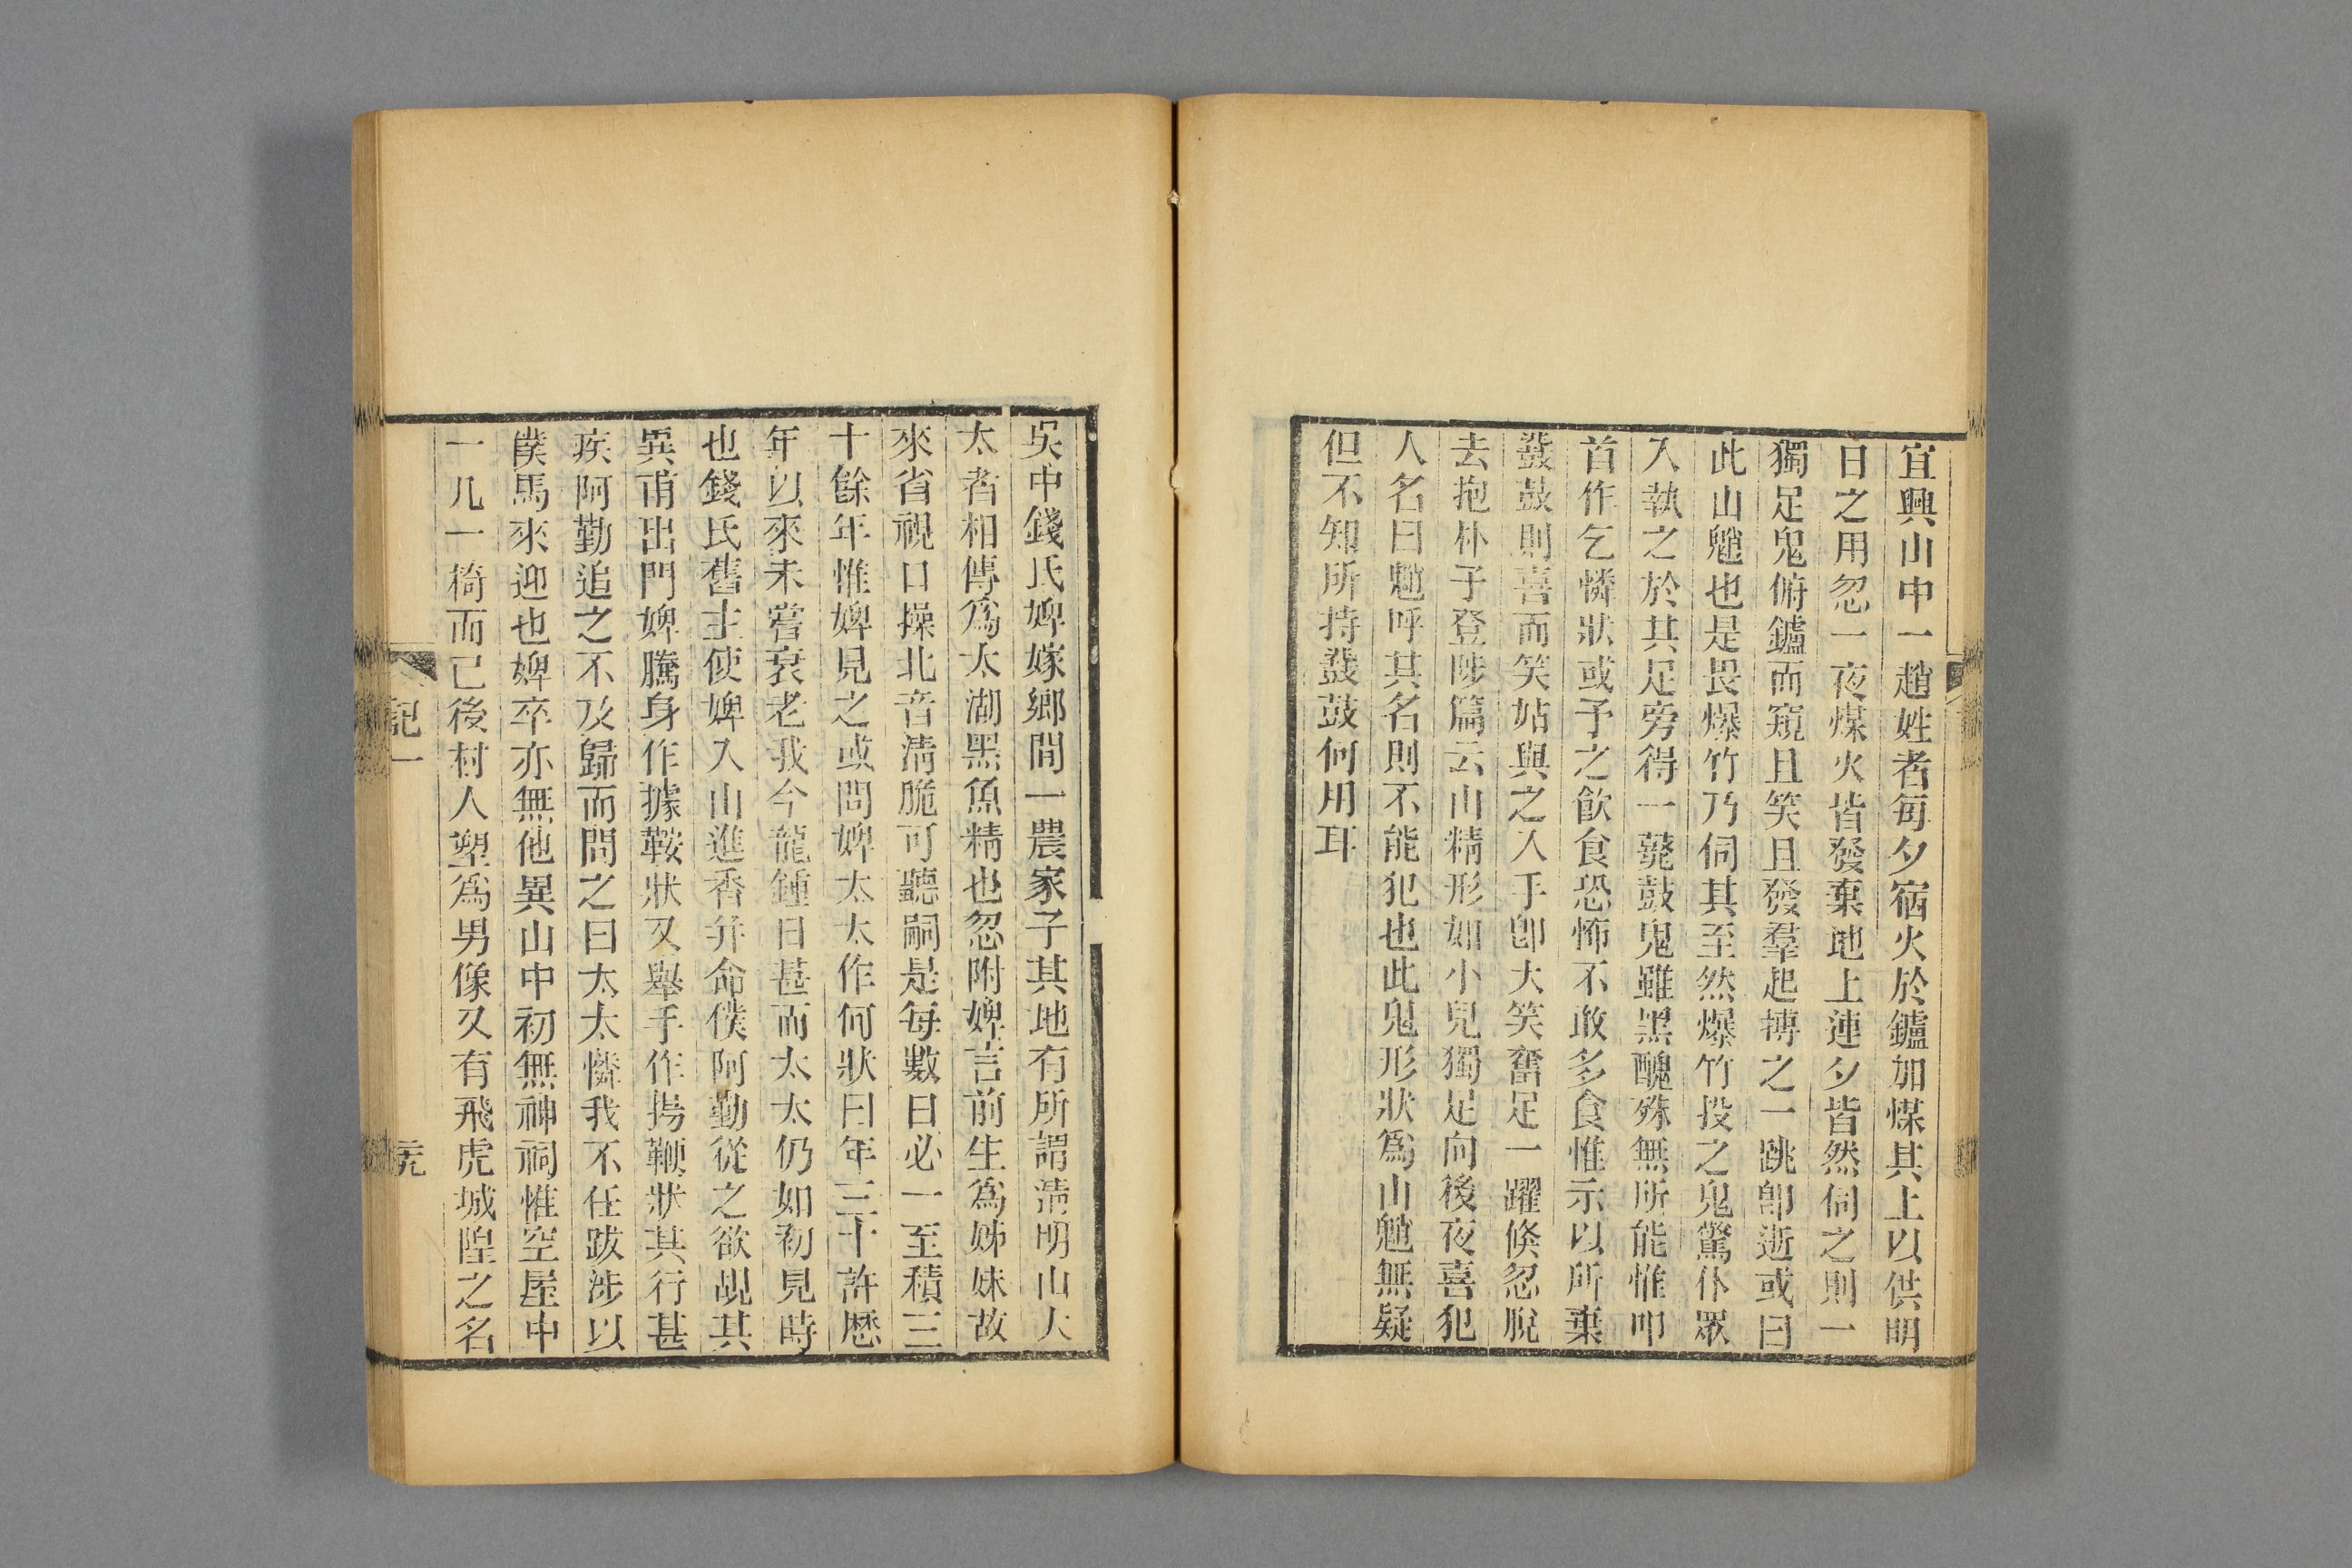 宜興山中一趙姓者每夕宿火於鑪加煤其上以供明
日之用忽一夜煤火皆發棄地上連夕皆然伺之則一
獨足鬼俯鑪而窺且笑且發羣起搏之一跳卽逝或曰
此山魈也是畏爆竹乃伺其至然爆竹投之鬼驚仆眾
入執之於其足旁得一鼗鼓鬼雖黑醜殊無所能惟叩
首作乞憐狀或予之飮食恐怖不敢多食惟示以所棄
鼗鼓則喜而笑姑與之入手卽大笑奮足一躍倏忽脫
去抱朴子登陟篇云山精形如小兒獨足向後夜喜犯
人名曰魈呼其名則不能犯也此鬼形狀爲山魈無疑
但不知所持鼗鼓何用耳
吳中錢氏婢嫁鄉間一農家子其地有所謂淸明山大
太者相傳爲太湖黑魚精也忽附婢言前生爲姊妹故
來省視口操北音淸脆可聽嗣是每數日必一至積三
十餘年惟婢見之或問婢太太作何狀曰年三十許歷
年以來未嘗衰老我今龍鍾日甚而太太仍如初見時
也錢氏舊主使婢入山進香幷命僕阿勤從之欲覘其
異甫出門婢騰身作據鞍狀又舉手作揚鞭狀其行甚
疾阿勤追之不及歸而問之曰太太憐我不任跋涉以
僕馬來迎也婢卒亦無他異山中初無神祠惟空屋中
一几一椅而已後村人塑爲男像又有飛虎城隍之名
記一